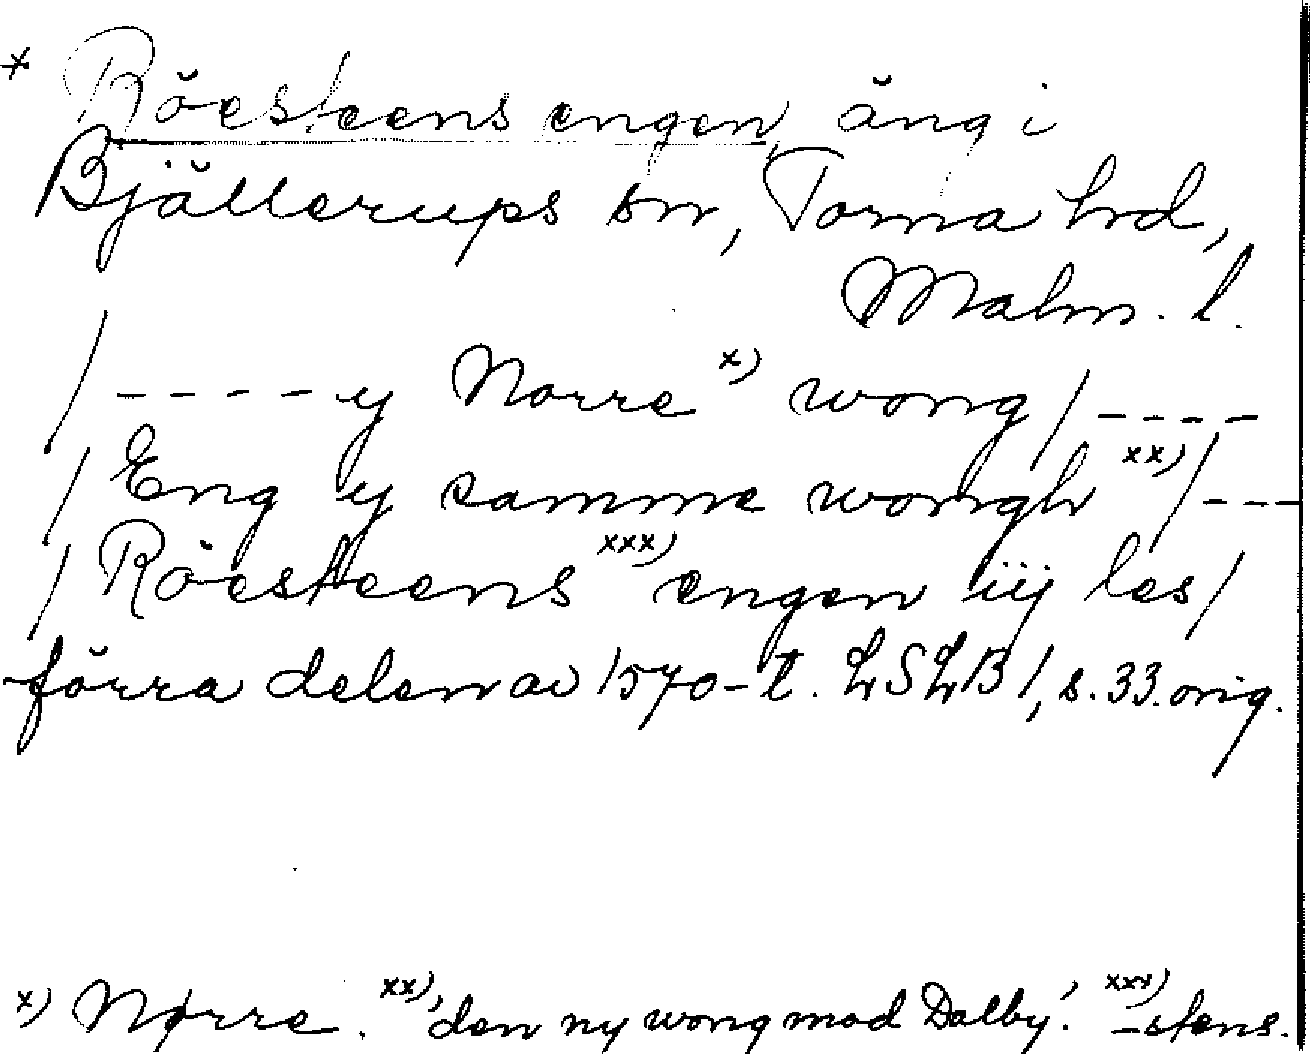 * Röesteens engen, äng i
Bjällerups sn, Torna hrd,
Malm. l.
/ - - - - - y Norre x) wong / - - - -
/ Eng y samme wongh xx) / - - -
/ Röesteens xxx) engen iij les /
förra delen av 1570-t. LSLB 1, s. 33. orig.
x) Nørre. xx) 'den ny wong mod Dalby'. xxx) -stens.